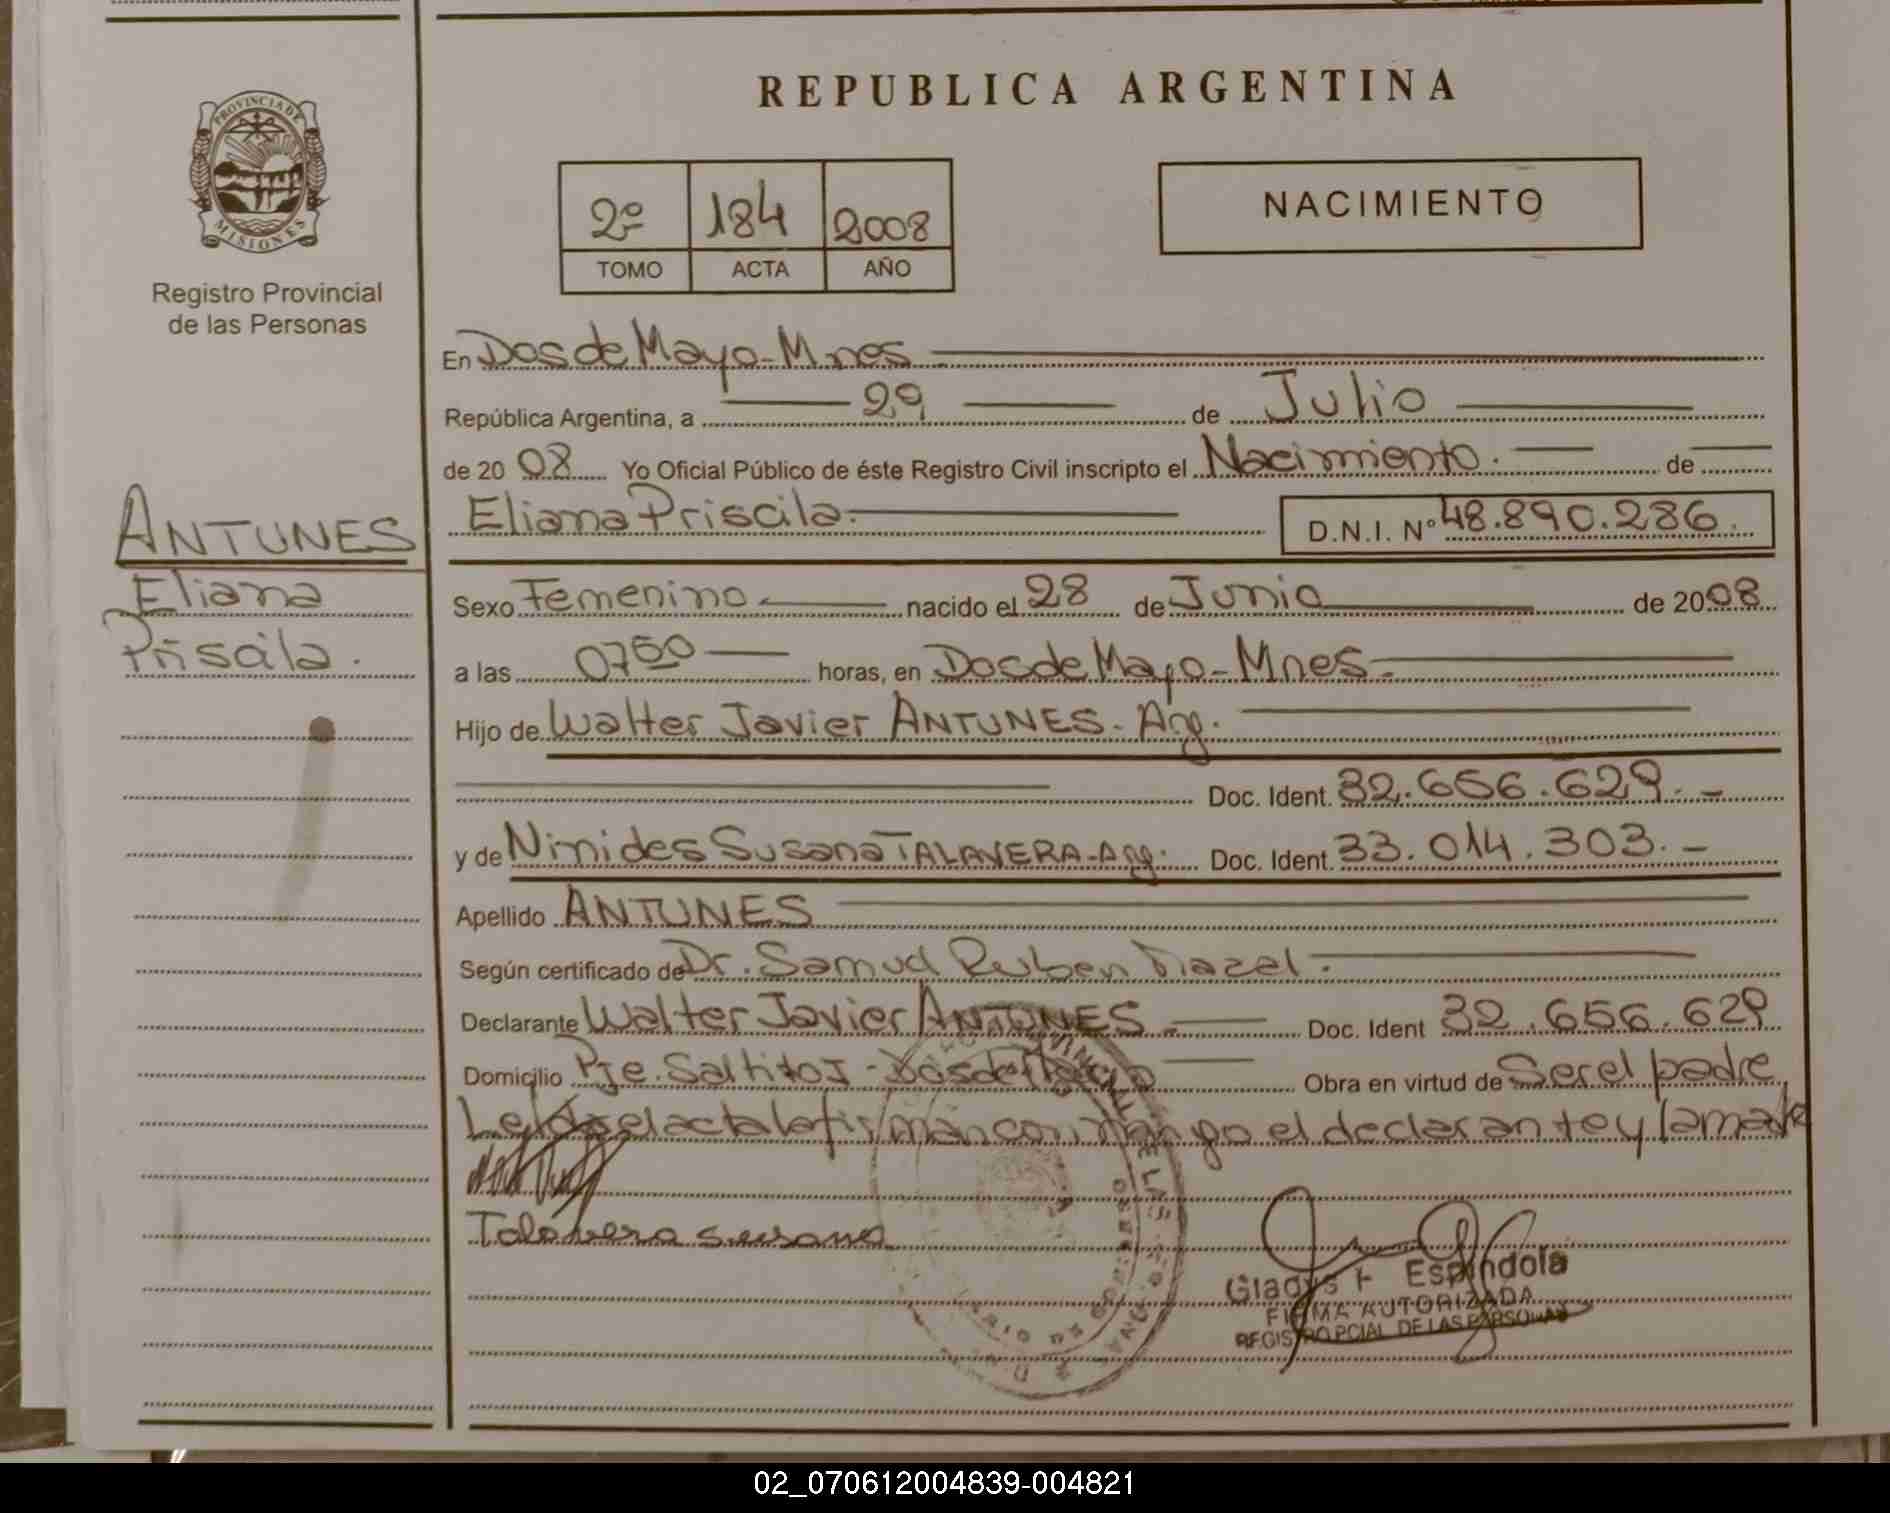 REPUBLICA ARGENTINA
PROVINCIA DE
MISIONES
Registro Provincial
de las Personas
2º 184 2008
TOMO ACTA AÑO
NACIMIENTO
En Dos de Mayo - Mnes
República Argentina, a 29 de Julio
de 2008 Yo Oficial Público de éste Registro Civil inscripto el Nacimiento. de
Eliana Priscila. D.N.I. Nº 48.890.286.
ANTUNES
Eliana
Priscila.
Sexo Femenino nacido el 28 de Junio de 2008
a las 0750 horas, en Dos de Mayo - Mnes -
Hijo de Walter Javier ANTUNES - Arg.
Doc. Ident. 32.656.629. -
y de Nimides Susana TALAVERA - Arg. Doc. Ident. 33.014.303. -
Apellido ANTUNES
Según certificado de Dr. Samuel Ruben
Declarante Walter Javier ANTUNES - Doc. Ident 32.656.629
Domicilio Pje. Saltito I - Dos de Mayo Obra en virtud de Ser el padre
Leída el acta la firman conmigo el declarante y la madre
Talavera Susana
Gladys Espindola
FIRMA AUTORIZADA
REGISTRO PCIAL DE LAS PERSONAS
02_070612004839-004821